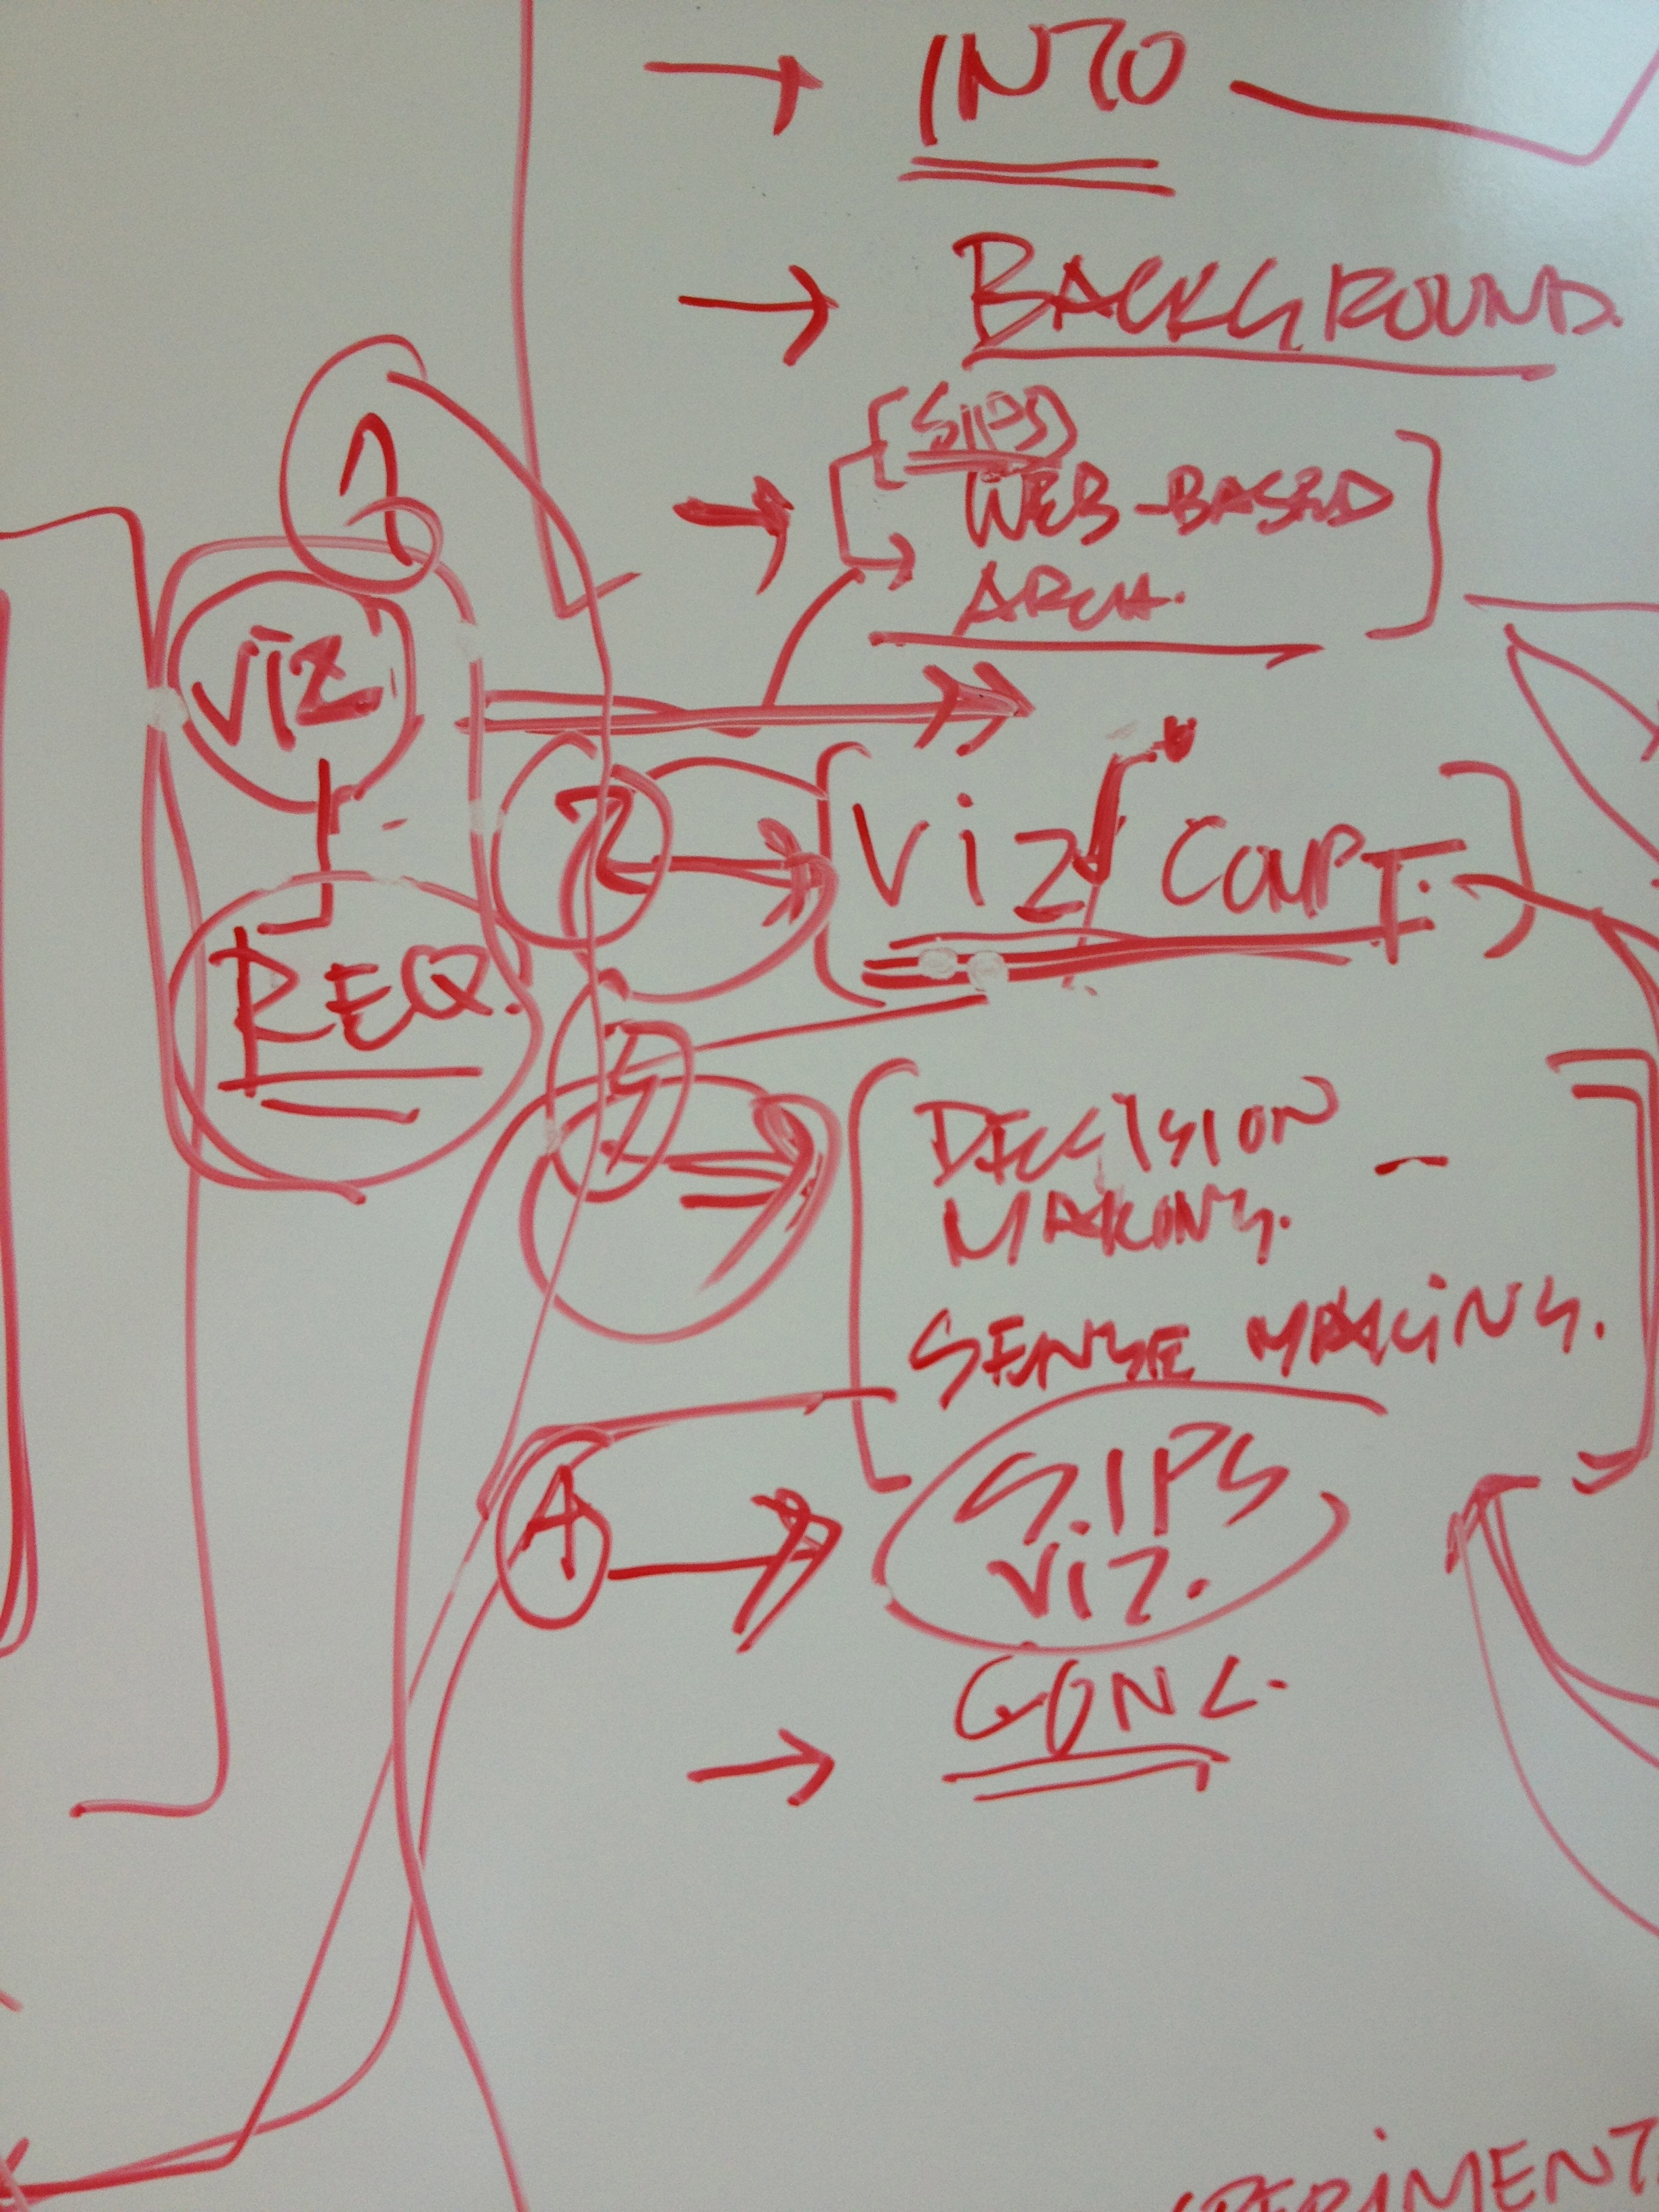 → INTO
→ BACKGROUND.
1
[SIPS]
→ WEB-BASED
ARCH.
VIZ.
2 → [VIZ COMPT.]
REQ.
DECISION -
MAKING.
SENSE MAKING.
4 → SIPS
VIZ.
→ CONC.